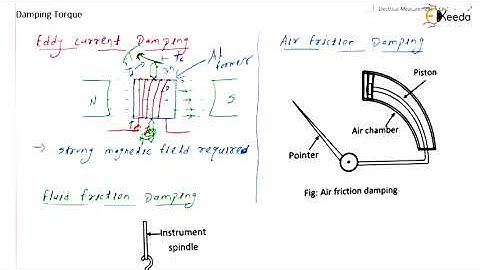 Damping Torque
Electrical Measure
eKeeda
Eddy current Damping
Td
Tc
Al
former
N
S
→ strong magnetic field required
Fluid friction Damping
Instrument
spindle
Air friction Damping
Piston
Air chamber
Pointer
Fig: Air friction damping